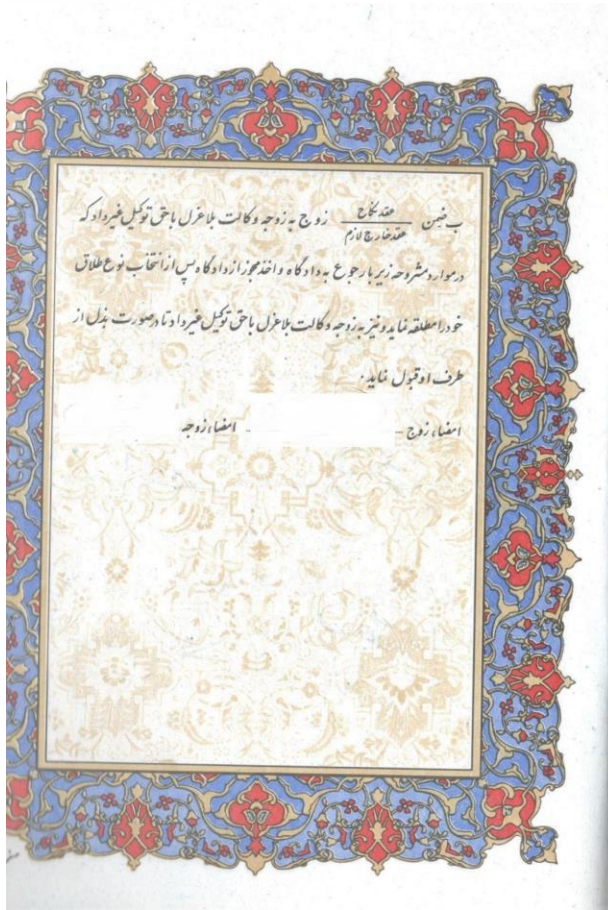 ب ضمن عقد نکاح / عقد خارج لازم زوج به زوجه وکالت بلاعزل با حق توکیل غیر داد که
در موارد مشروحه زیر با رجوع به دادگاه و اخذ مجوز از دادگاه پس از انتخاب نوع طلاق
خود را مطلقه نماید و نیز به زوجه وکالت بلاعزل با حق توکیل غیر داد تا در صورت بذل از
طرف او قبول نماید.
امضاء زوج - امضاء زوجه